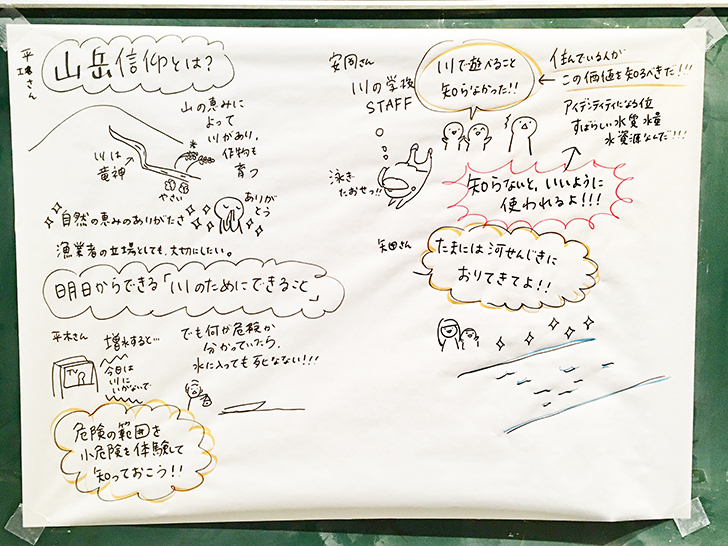 平 さん
山岳信仰とは?
山の恵みに
よって
川があり、
作物も
育つ
川は
竜神
やさい
自然の恵みのありがたさ
ありが
とう
漁業者の立場としても、大切にしたい。
明日からできる「川のためにできること」
平木さん
増水すると…
TV
今日は
川に
いかないで
でも何が危険か
分かっていたら、
水に入っても死なない!!!
危険の範囲を
小危険を体験して
知っておこう!!
安岡さん
川の学校
STAFF
泳ぎ
たおせっ!!
川で遊べること
知らなかった!!
住んでいる人が
この価値を知るべきだ!!!
アイデンティティになる位
すばらしい水質水量
水資源なんだ!!!
知らないと、いいように
使われるよ!!!
矢田さん
たまには河せんじきに
おりてきてよ!!